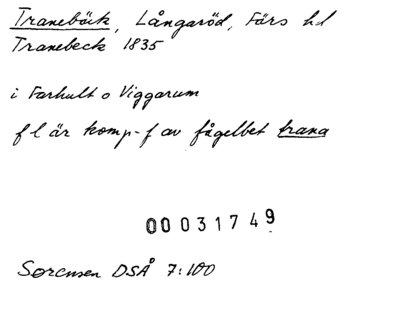 Tranebäck, Långaröd, Färs hd
Tranebeck 1835
i Farhult o Viggarum
f l är komp-f av fågelbet trana
00031749
Sorensen DSÅ 7:100